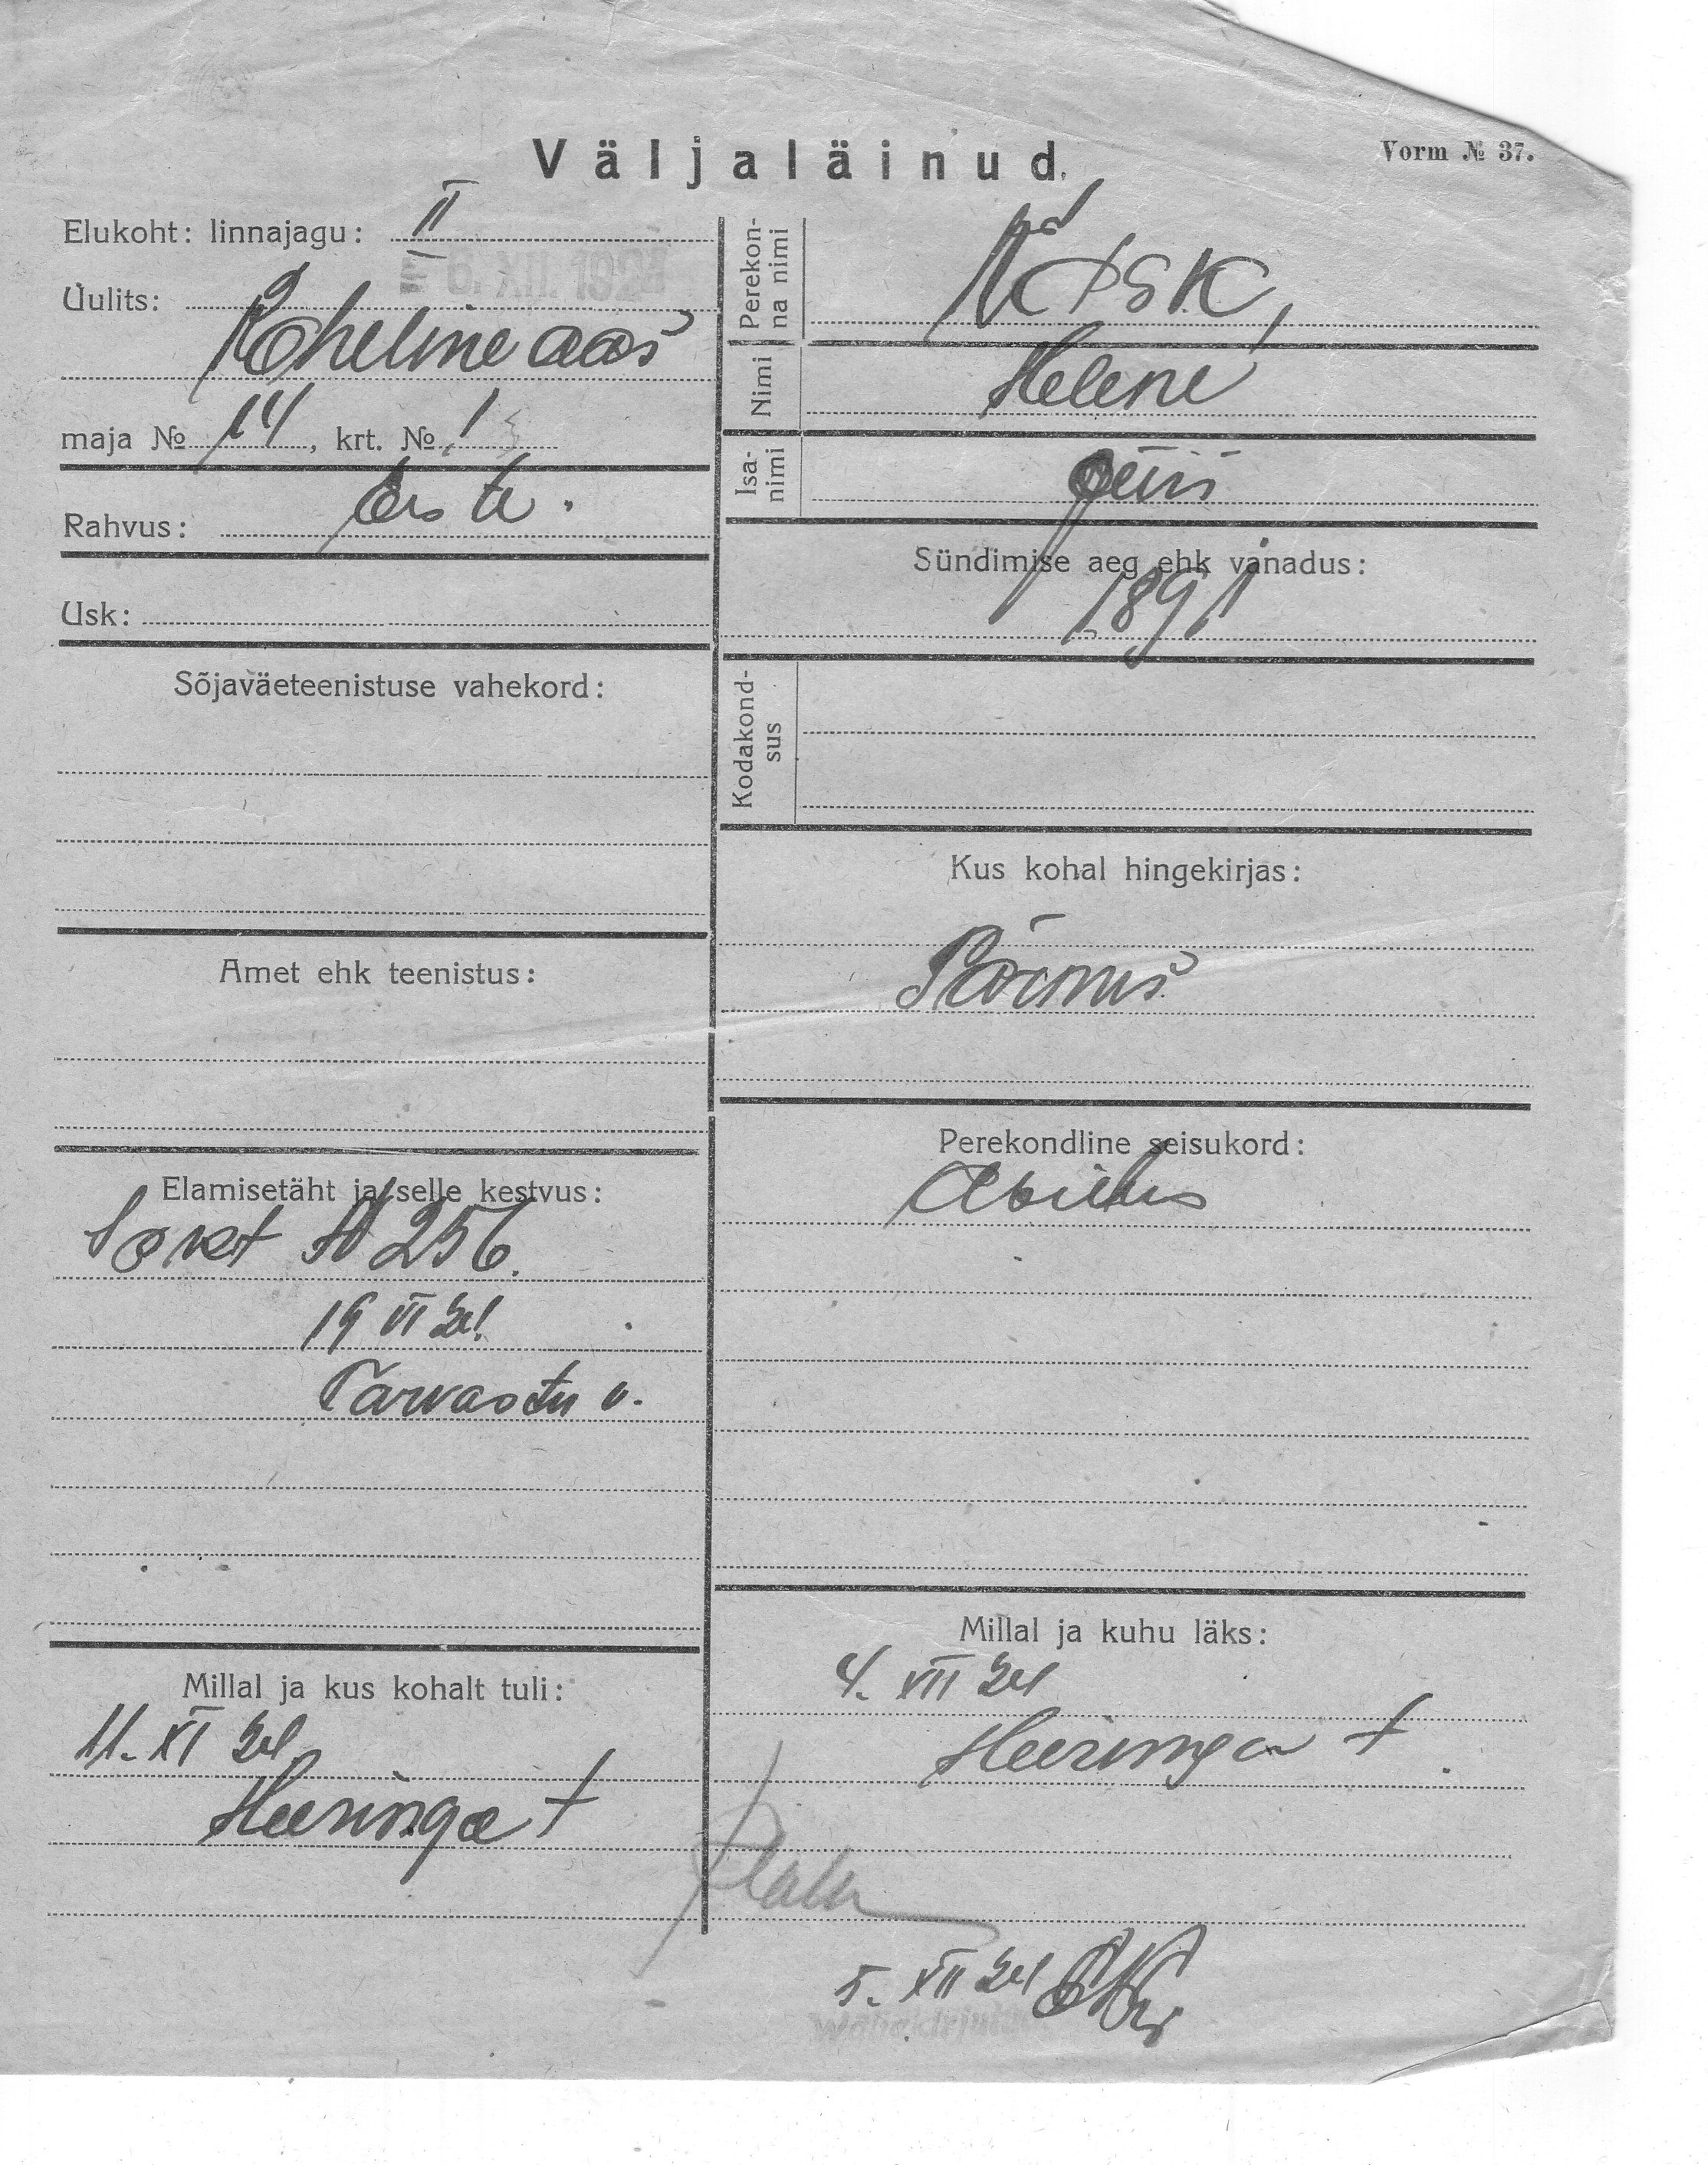 Väljaläinud.
Vorm № 37.
Elukoht: linnajagu: II
6. XII. 192
Uulits:
Roheline aas
maja № 14, krt. № 1
Rahvus: Eesti.
Usk:
Sõjaväeteenistuse vahekord:
Amet ehk teenistus:
Elamisetäht ja selle kestvus:
№ 256.
19 VI 24
Tarvastu v.
Millal ja kus kohalt tuli:
11. XI 24
Heeringa t
Perekon-
na nimi
Nimi
Helene
Isa-
nimi
Jüri
Sündimise aeg ehk vanadus:
1891
Kodakond-
sus
Kus kohal hingekirjas:
Pärnus
Perekondline seisukord:
Abielus
Millal ja kuhu läks:
4. XII 24
Heeringa t
5. XII 24